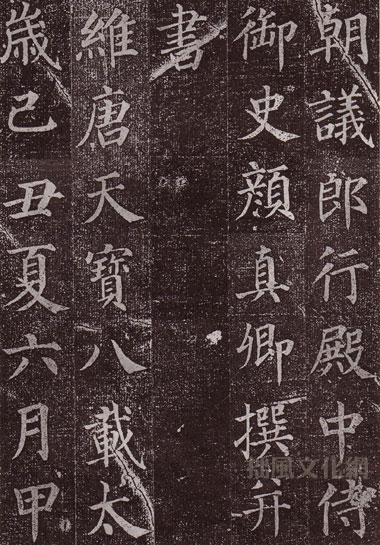 朝議郎行殿中侍
御史顔真卿撰并
書
維唐天寶八載太
歲己丑夏六月甲
風文化網